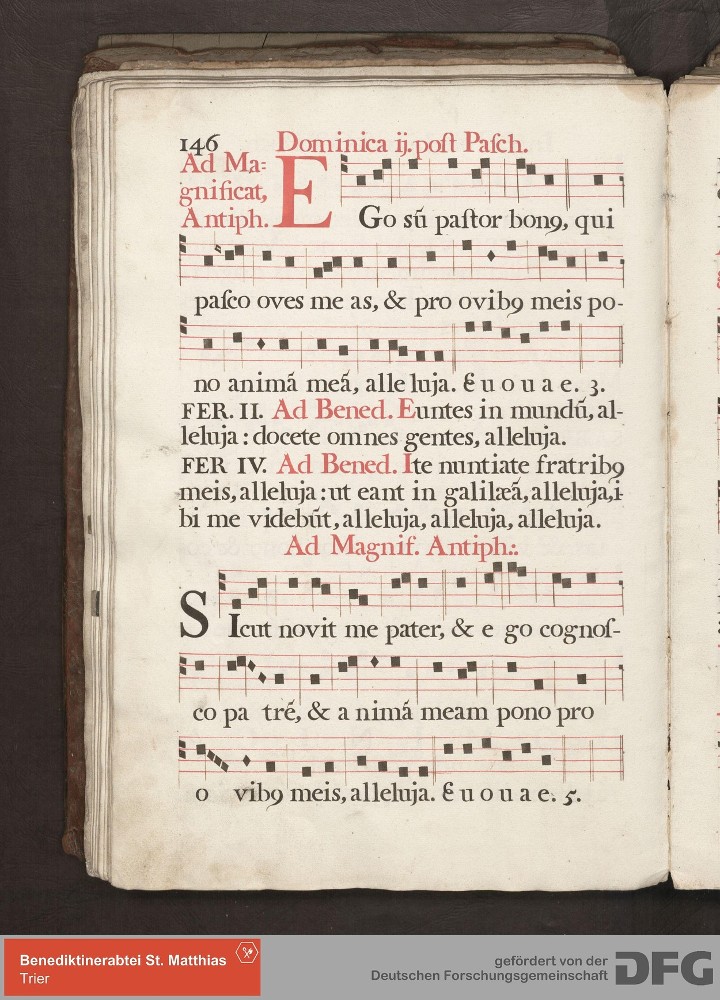 146 Dominica ij. post Pasch.
Ad Ma=
gnificat,
Antiph.
EGo sū pastor bonꝯ, qui
pasco oves me as, & pro ovibꝯ meis po-
no animā meā, alle luja. & u o u a e. 3.
FER. II. Ad Bened. Euntes in mundū, al-
leluja : docete omnes gentes, alleluja.
FER IV. Ad Bened. Ite nuntiate fratribꝯ
meis, alleluja : ut eant in galilææ̃, alleluja, i-
bi me videbūt, alleluja, alleluja, alleluja.
Ad Magnif. Antiph:.
SIcut novit me pater, & e go cognos-
co pa trē, & a nimā meam pono pro
o vibꝯ meis, alleluja. & u o u a e. 5.
Benediktinerabtei St. Matthias
Trier
gefördert von der
Deutschen Forschungsgemeinschaft
DFG